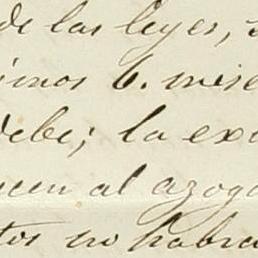 de las leyes,
imos 6. mise
debe; la ex
ucen al azog
tos no habra